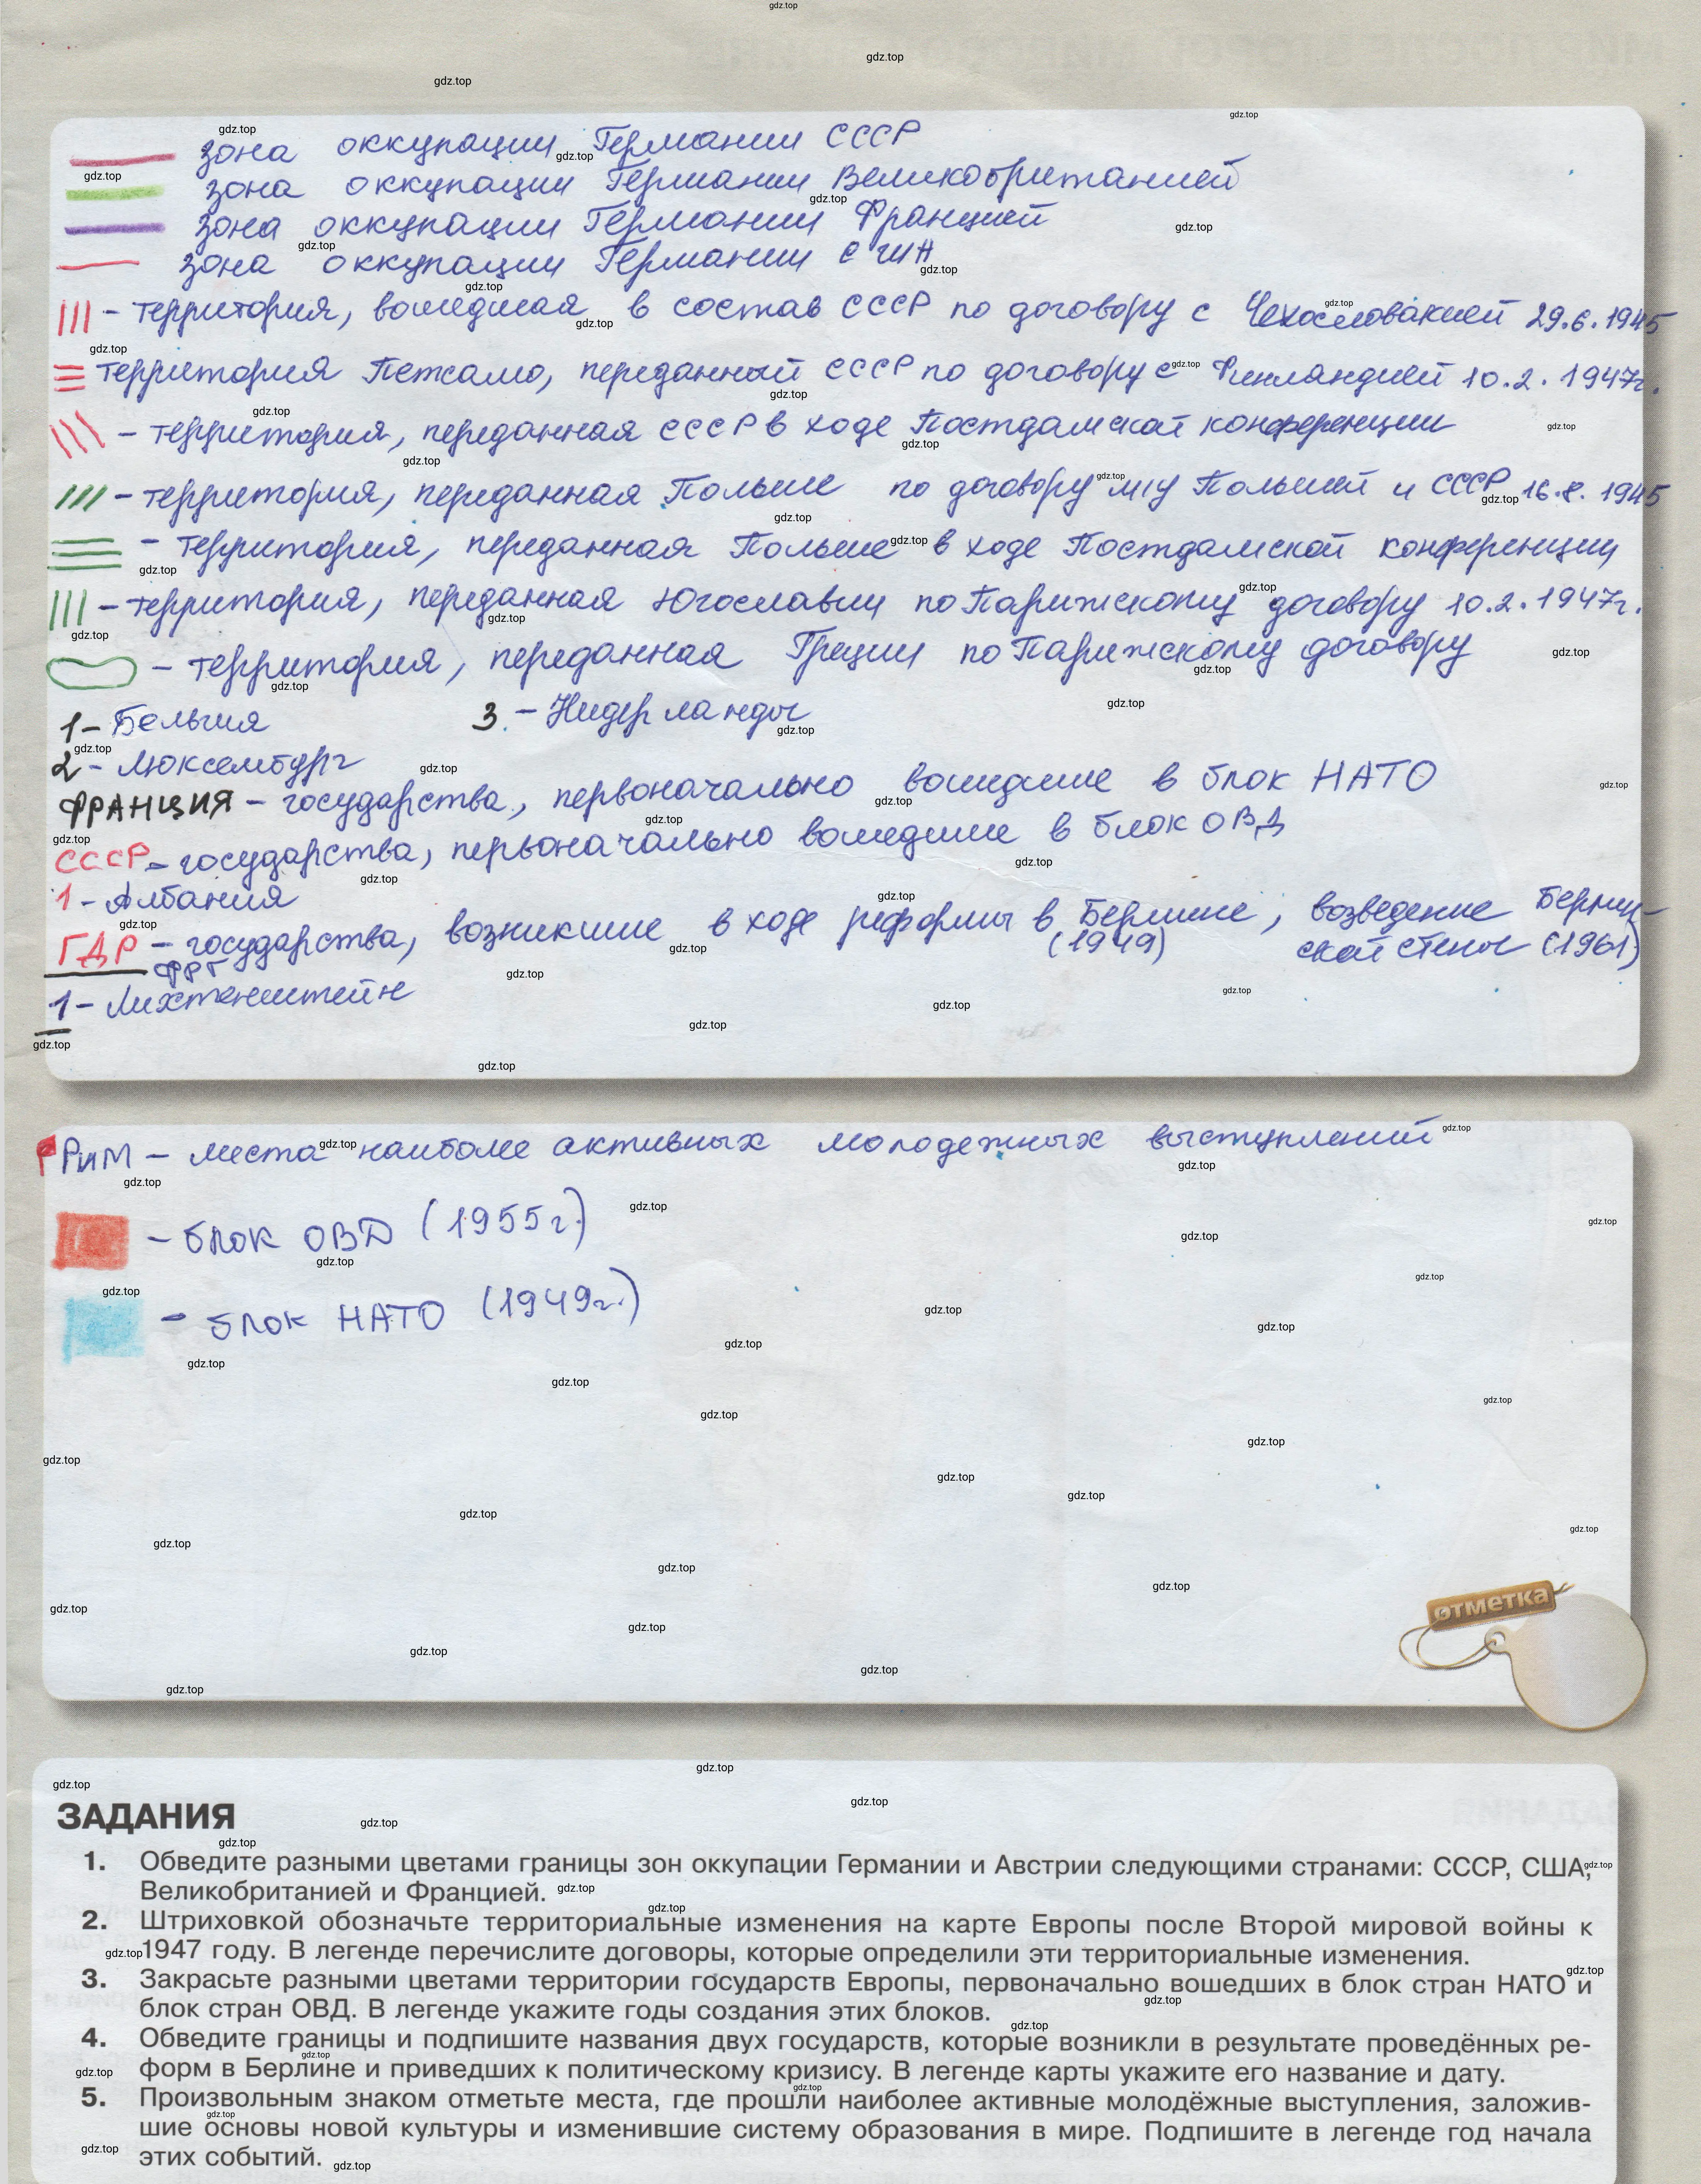 зона оккупации Германии СССР
зона оккупации Германии Великобританией
зона оккупации Германии Францией
зона оккупации Германии США
– территория, вошедшая в состав СССР по договору с Чехословакией 29.6.1945
территория Петсамо, переданный СССР по договору с Финляндией 10.2.1947г.
– территория, переданная СССР в ходе Постдамской конференции
– территория, переданная Польше по договору м/у Польшей и СССР 16.8.1945
– территория, переданная Польше в ходе Постдамской конференции,
– территория, переданная Югославии по Парижскому договору 10.2.1947г.
– территория, переданная Греции по Парижскому договору
1 – Бельгия 3. – Нидерланды
2 – Люксембург
ФРАНЦИЯ – государства, первоначально вошедшие в блок НАТО
СССР – государства, первоначально вошедшие в блок ОВД
1 – Албания
ГДР – государства, возникшие в ходе реформы в Берлине, возведение Берлин-
ФРГ (1949) ской стены (1961)
1 – Лихтенштейн
Рим – места наиболее активных молодежных выступлений
– блок ОВД (1955г.)
– блок НАТО (1949г.)
отметка
ЗАДАНИЯ
1. Обведите разными цветами границы зон оккупации Германии и Австрии следующими странами: СССР, США,
Великобританией и Францией.
2. Штриховкой обозначьте территориальные изменения на карте Европы после Второй мировой войны к
1947 году. В легенде перечислите договоры, которые определили эти территориальные изменения.
3. Закрасьте разными цветами территории государств Европы, первоначально вошедших в блок стран НАТО и
блок стран ОВД. В легенде укажите годы создания этих блоков.
4. Обведите границы и подпишите названия двух государств, которые возникли в результате проведённых ре-
форм в Берлине и приведших к политическому кризису. В легенде карты укажите его название и дату.
5. Произвольным знаком отметьте места, где прошли наиболее активные молодёжные выступления, заложив-
шие основы новой культуры и изменившие систему образования в мире. Подпишите в легенде год начала
этих событий.
gdz.top